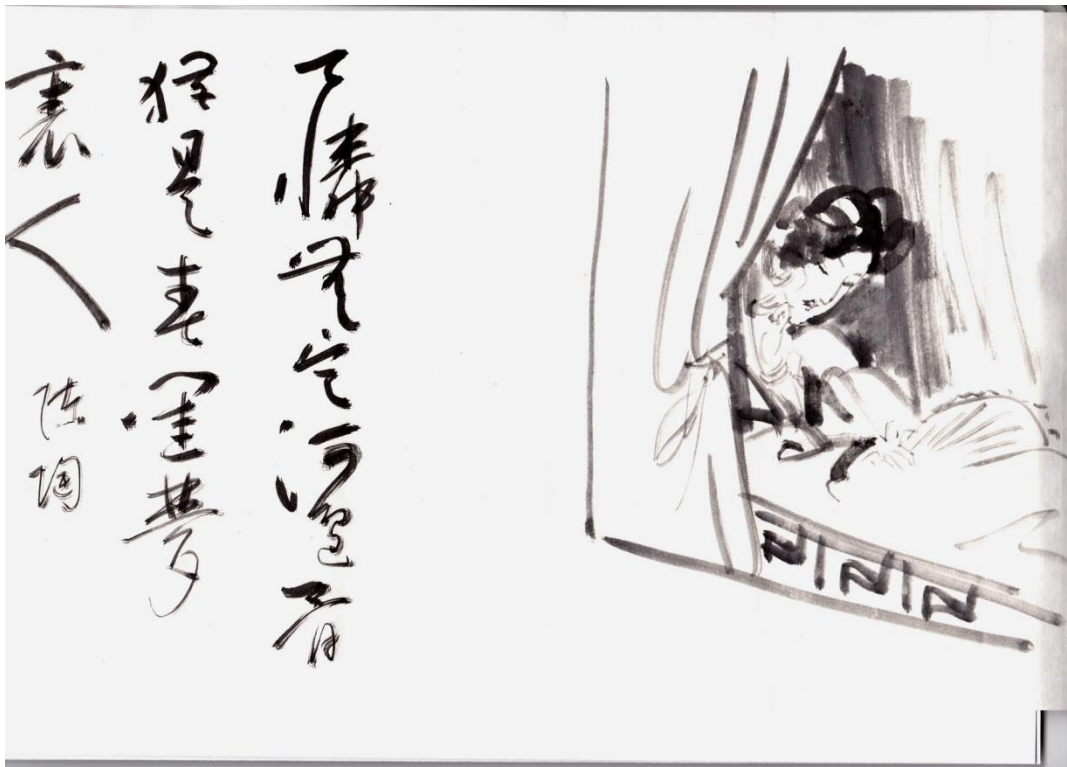 可憐無定河邊骨
猶是春閨夢
裏人
陳陶